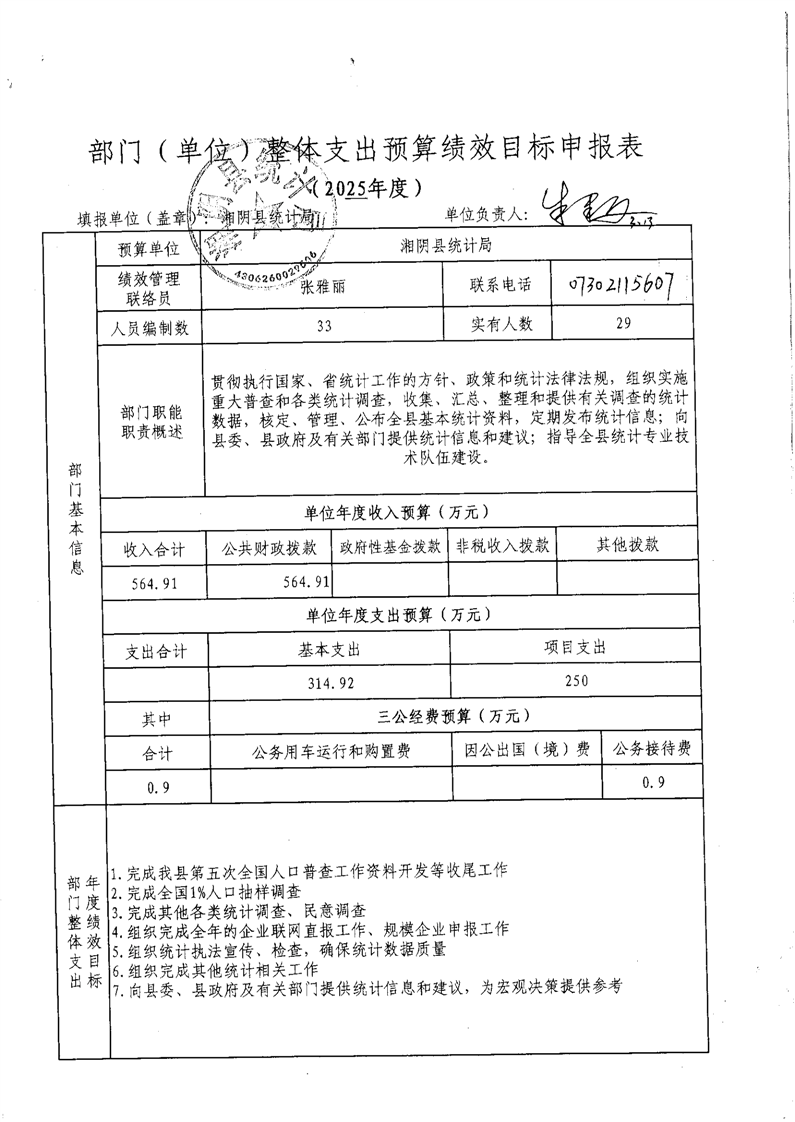 部门（单位）整体支出预算绩效目标申报表
（2025年度）
填报单位（盖章）：湘阴县统计局 单位负责人： 3.13
部门基本信息
预算单位 湘阴县统计局
绩效管理联络员 张雅丽 联系电话 07302115607
人员编制数 33 实有人数 29
部门职能职责概述
贯彻执行国家、省统计工作的方针、政策和统计法律法规，组织实施
重大普查和各类统计调查，收集、汇总、整理和提供有关调查的统计
数据，核定、管理、公布全县基本统计资料，定期发布统计信息；向
县委、县政府及有关部门提供统计信息和建议；指导全县统计专业技
术队伍建设。
单位年度收入预算（万元）
收入合计 公共财政拨款 政府性基金拨款 非税收入拨款 其他拨款
564.91 564.91
单位年度支出预算（万元）
支出合计 基本支出 项目支出
314.92 250
其中 三公经费预算（万元）
合计 公务用车运行和购置费 因公出国（境）费 公务接待费
0.9 0.9
部门整体支出年度绩效目标
1.完成我县第五次全国人口普查工作资料开发等收尾工作
2.完成全国1%人口抽样调查
3.完成其他各类统计调查、民意调查
4.组织完成全年的企业联网直报工作、规模企业申报工作
5.组织统计执法宣传、检查，确保统计数据质量
6.组织完成其他统计相关工作
7.向县委、县政府及有关部门提供统计信息和建议，为宏观决策提供参考
湘阴县统计局
4306260029606